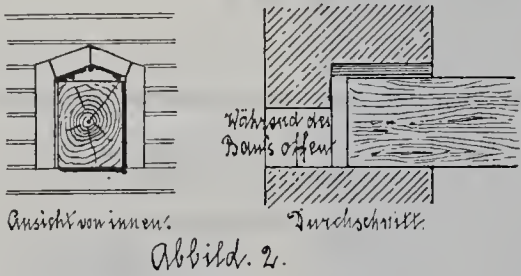 Während des
Baus offen
Ansicht von innen.
Durchschnitt.
Abbild. 2.